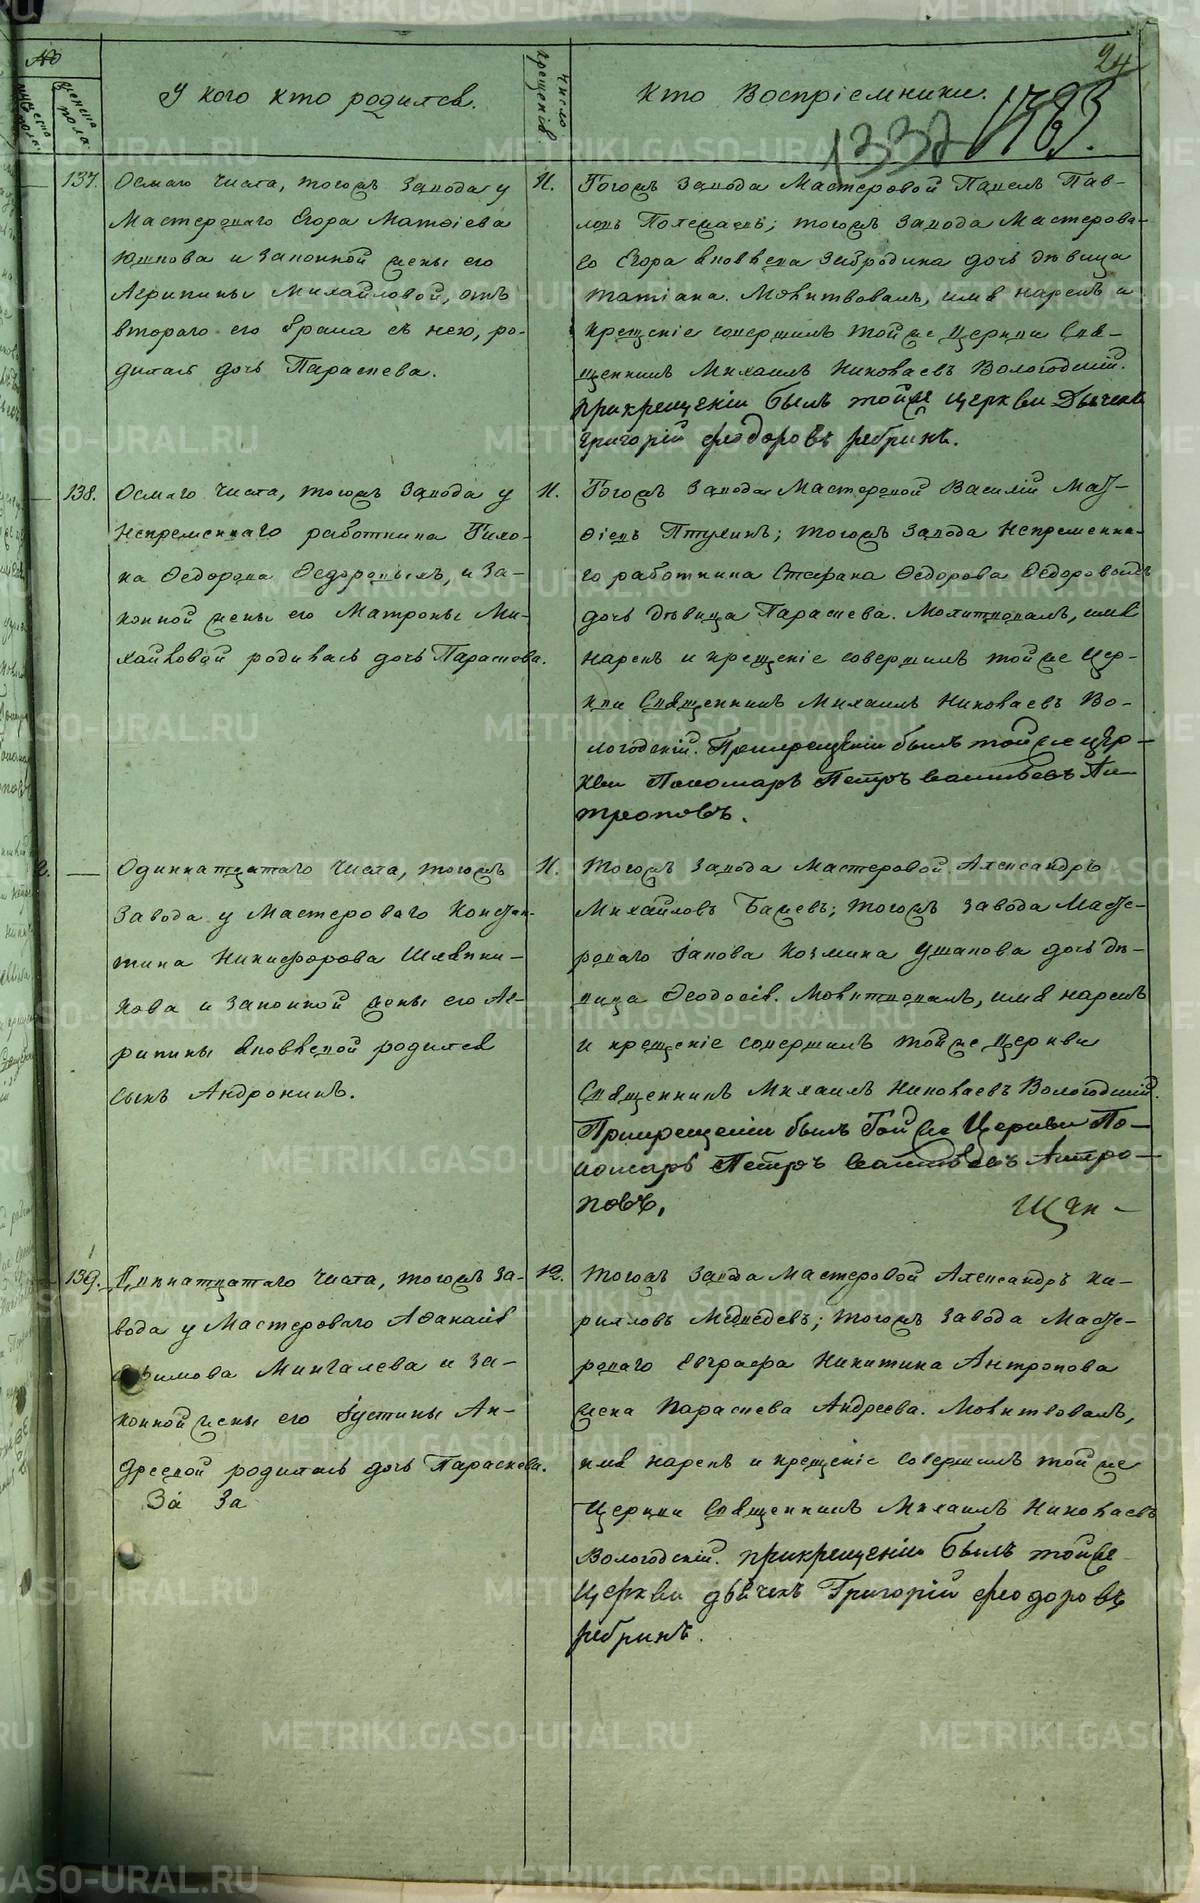 24
№
У кого кто родился.
Число крещенія
Кто Воспріемники.
1332
1363.
женска пола
137.
Осмаго числа, тогожъ завода у
Мастероваго Егора Матѳіева
Юшкова и законной жены его
Агрипины Михайловой, отъ
втораго его брака съ нею, ро-
дилась дочь Параскева.
Тогожъ завода Мастеровой Павелъ Пав-
ловъ тогожъ завода Мастерова-
го Егора Яковлева Забродина дочь дѣвица
Татіана. Молитвовалъ, имя нарекъ и
крещеніе совершилъ тойже Церкви Свя-
щенникъ Михаилъ Николаевъ Вологодскій.
прикрещеніи былъ тойже церкви Дьячекъ
Григорій феодоровъ ребринъ.
138.
Осмаго числа, тогожъ завода у
Непремѣннаго работника Тихо-
на Ѳедорова Ѳедоровыхъ, и за-
конной жены его Матроны Ми-
хайловой родилась дочь Параскева.
Тогожъ завода Мастеровой Василій Мат-
ѳіевъ Птухинъ; тогожъ завода Непремѣнна-
го работника Стефана Ѳедорова Ѳедоровыхъ
дочь дѣвица Параскева. Молитвовалъ, имя
нарекъ и крещеніе совершилъ тойже Цер-
кви Священникъ Михаилъ Николаевъ Во-
логодскій. Прикрещеніи былъ тойже цер-
кви Пономарь Петръ Васильевъ Ан-
троповъ.
2.
—
Одиннатцатаго числа, тогожъ
завода у Мастероваго Констан-
тина Никифорова Шляпни-
кова и законной жены его Аг-
рипины Яковлевой родился
сынъ Андроникъ.
Тогожъ завода Мастеровой Александръ
Михайловъ тогожъ завода Масте-
роваго Іакова Козмина Ушакова дочь дѣ-
вица Ѳеодосія. Молитвовалъ, имя нарекъ
и крещеніе совершилъ тойже Церкви
Священникъ Михаилъ Николаевъ Вологодскій.
Прикрещеніи былъ Тойже Церкви По-
номарь Петръ Васильевъ Антро-
повъ.
139.
числа, тогожъ за-
вода у Мастероваго Аѳанасія
Мингалева и за-
конной жены его Іустины Ан-
дреевой родилась дочь Параскева.
За За
12.
Тогожъ завода Мастеровой Александръ Ки-
рилловъ Медведевъ; тогожъ завода Масте-
роваго Евграфа Никитина Антропова
жена Параскева Андреева. Молитвовалъ,
имя нарекъ и крещеніе совершилъ тойже
Церкви Священникъ Михаилъ Николаевъ
Вологодскій. прикрещеніи былъ тойже
Церкви дьячекъ Григорій феодоровъ
ребринъ.
METRIKI.GASO-URAL.RU